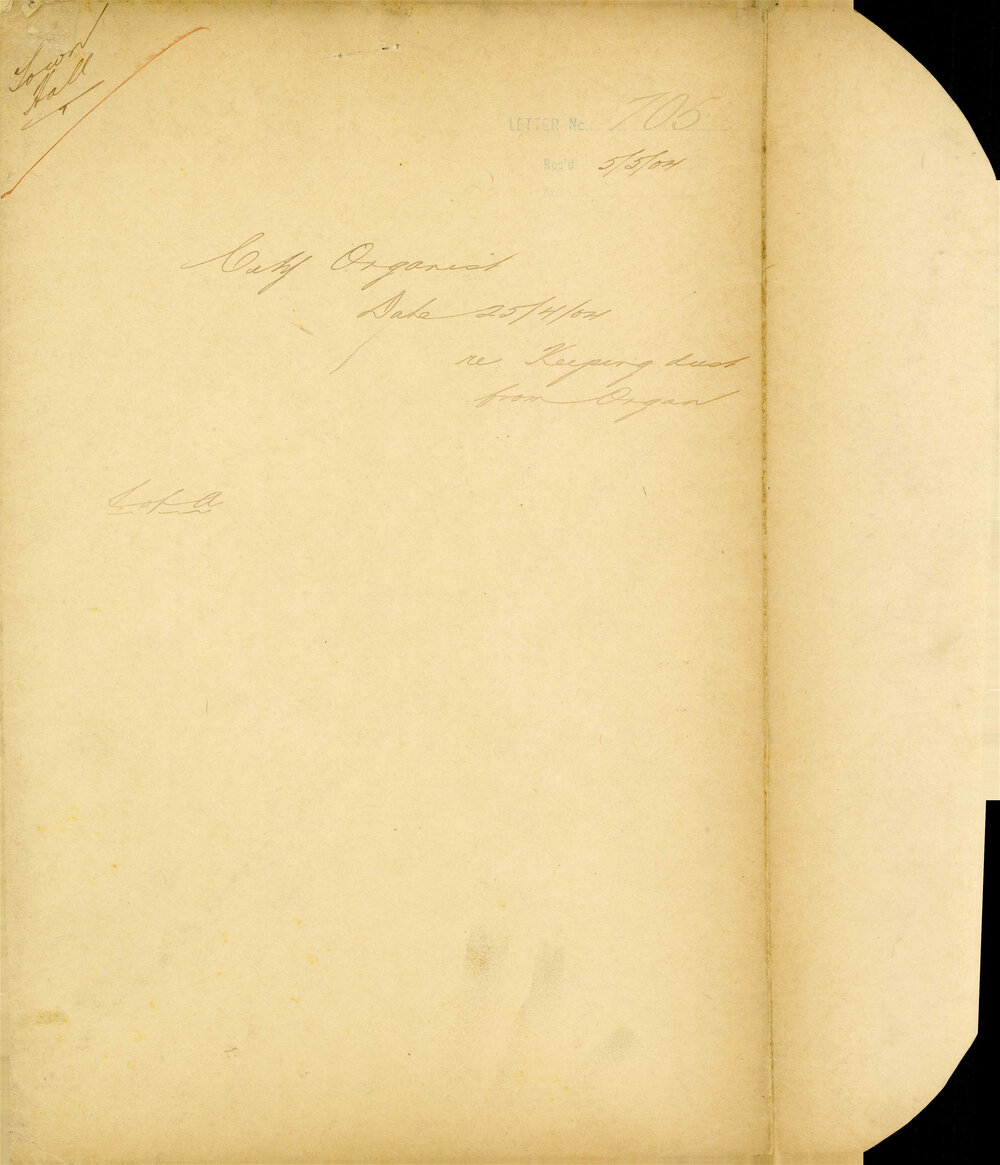 Town
Hall
LETTER No. 705
Rec'd 5/5/04
City Organist
Date 25/4/04
re Keeping dust
from Organ